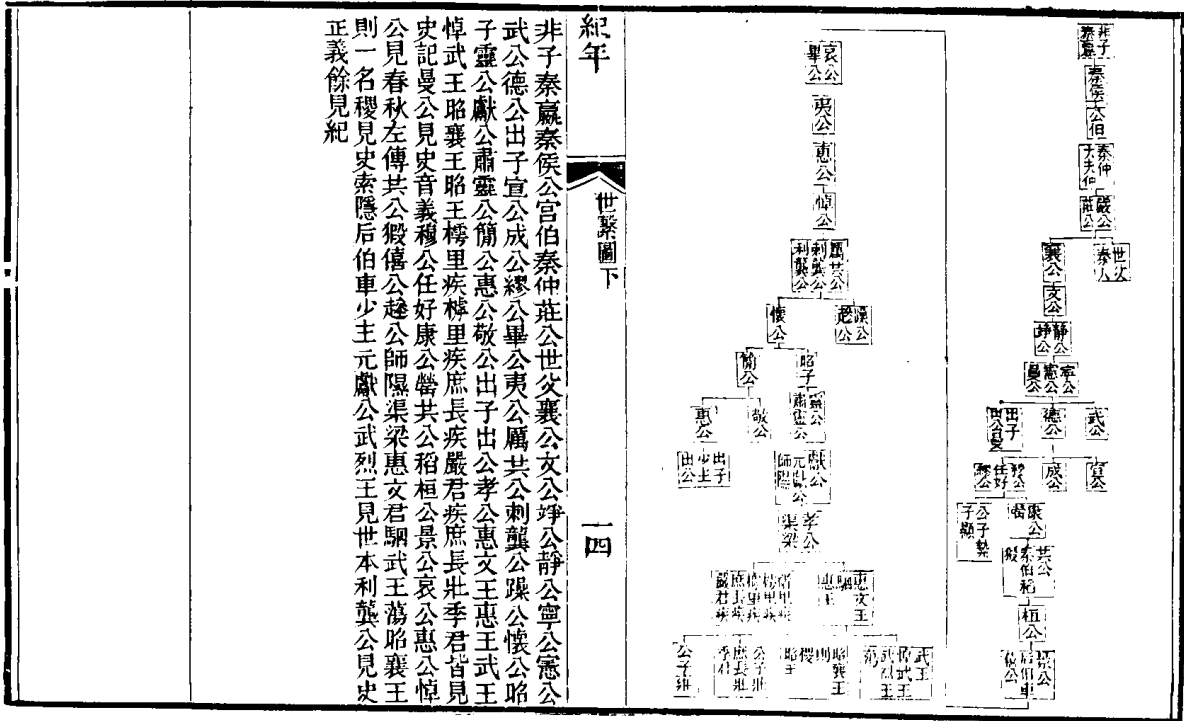 非子
秦嬴
秦侯
公伯
秦仲
大夫仲
嚴公
莊公
世父
襄公
文公
靜公
竫公
寧公
憲公
曼公
武公
德公
出子
宣公
成公
穆公
任好
繆公
康公
罃
公子憖
共公
秦伯稻
猳
桓公
景公
后伯車
僖公
哀公
畢公
夷公
惠公
悼公
厲共公
剌龔公
利龔公
躁公
趮公
懷公
昭子
簡公
靈公
肅靈公
敬公
惠公
獻公
元獻公
師隰
出子
少主
出公
孝公
渠梁
惠文王
駰
惠王
樗里疾
樗里疾
庶長疾
嚴君疾
武王
悼武王
武烈王
蕩
昭襄王
則
稷
昭王
公子壯
庶長壯
季君
公子雍
紀年
世繫圖下
一四
非子秦嬴秦侯公宫伯秦仲莊公世父襄公文公竫公靜公寧公憲公
武公德公出子宣公成公繆公畢公夷公厲共公刺龔公躁公懷公昭
子靈公獻公肅靈公簡公惠公敬公出子出公孝公惠文王惠王武王
悼武王昭襄王昭王樗里疾樗里疾庶長疾嚴君疾庶長壯季君皆見
史記曼公見史音義穆公任好康公罃共公稻桓公景公哀公惠公悼
公見春秋左傳共公猳僖公趮公師隰渠梁惠文君駰武王蕩昭襄王
則一名稷見史索隱后伯車少主元獻公武烈王見世本利龔公見史
正義餘見紀